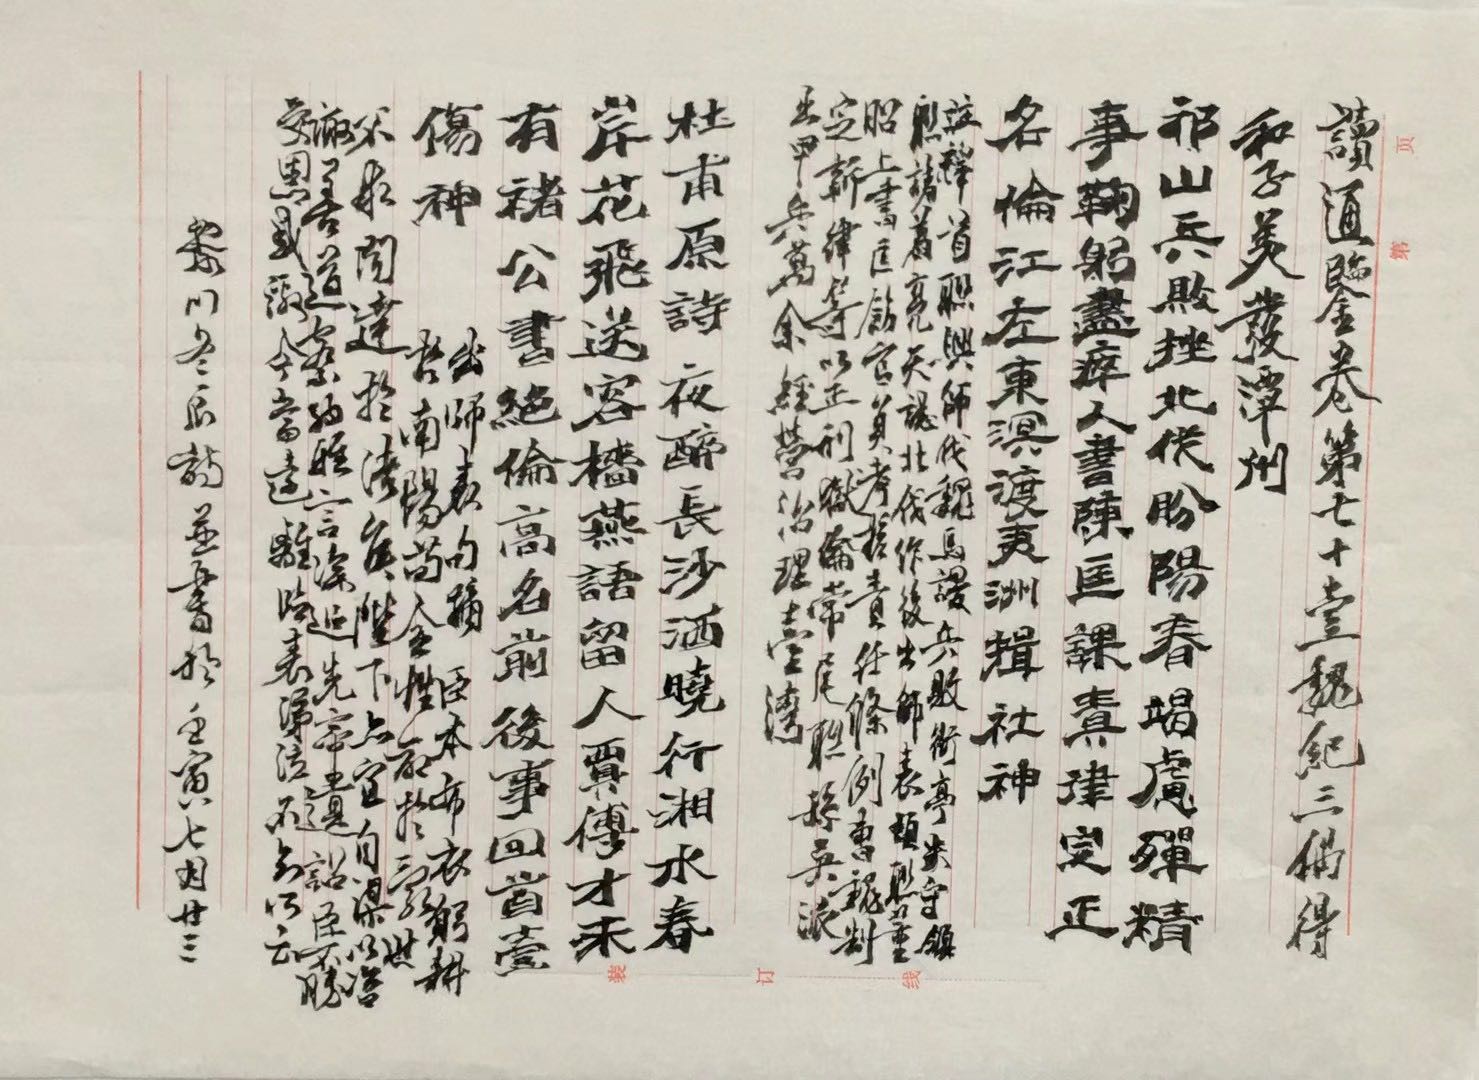 讀通鑒卷第七十壹魏紀三偶得
和子美發潭州
祁山兵敗挫北伐盼陽春竭慮殫精
事鞠躬盡瘁人書陳匡課責律定正
名倫江左東溟渡夷洲揖社神
註釋首聯興師伐魏馬謖兵敗街亭失守頷
聯諸葛亮矢誌北伐作後出師表頸聯董
昭上書匡飭官員考核責任條例曹魏制
定新律等以正刑獄倫常尾聯孫吳派
五甲兵萬余經營治理臺灣
杜甫原詩夜醉長沙酒曉行湘水春
岸花飛送客檣燕語留人賈傅才未
有褚公書絕倫高名前後事回首壹
傷神
出師表句摘臣本布衣躬耕
於南陽苟全性命於亂世
不求聞達於諸侯陛下亦宜自課以諮
諏善道察納雅言深追先帝遺詔臣不勝
受恩感激今當遠離臨表涕泣不知所云
黎川 並書於壬寅七月廿三
页
第
装
订
线